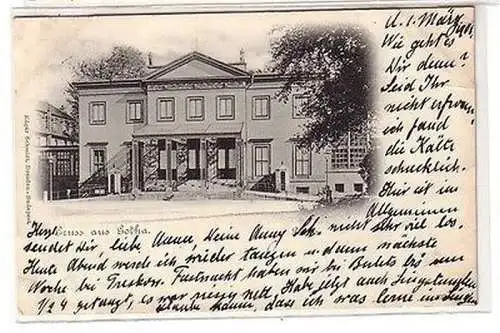 d. 1. März
Wie geht es
Dir denn?
Seid Ihr
nicht erfroren
ich fand
die Kälte
schrecklich.
Hier ist im
Allgemeinen
nicht sehr viel los.
Edgar Schmidt, Dresden-Budapest
Gruss aus Gotha.
sendet Dir, liebe Anna, Deine Anny Sch.
Heute Abend werde ich wieder tanzen u. dann nächste
Woche bei Treskow. Fastnacht haben wir bei bis
1/2 4 getanzt, es war riesig nett. Habe jetzt auch
Glaube kaum, dass ich was lerne